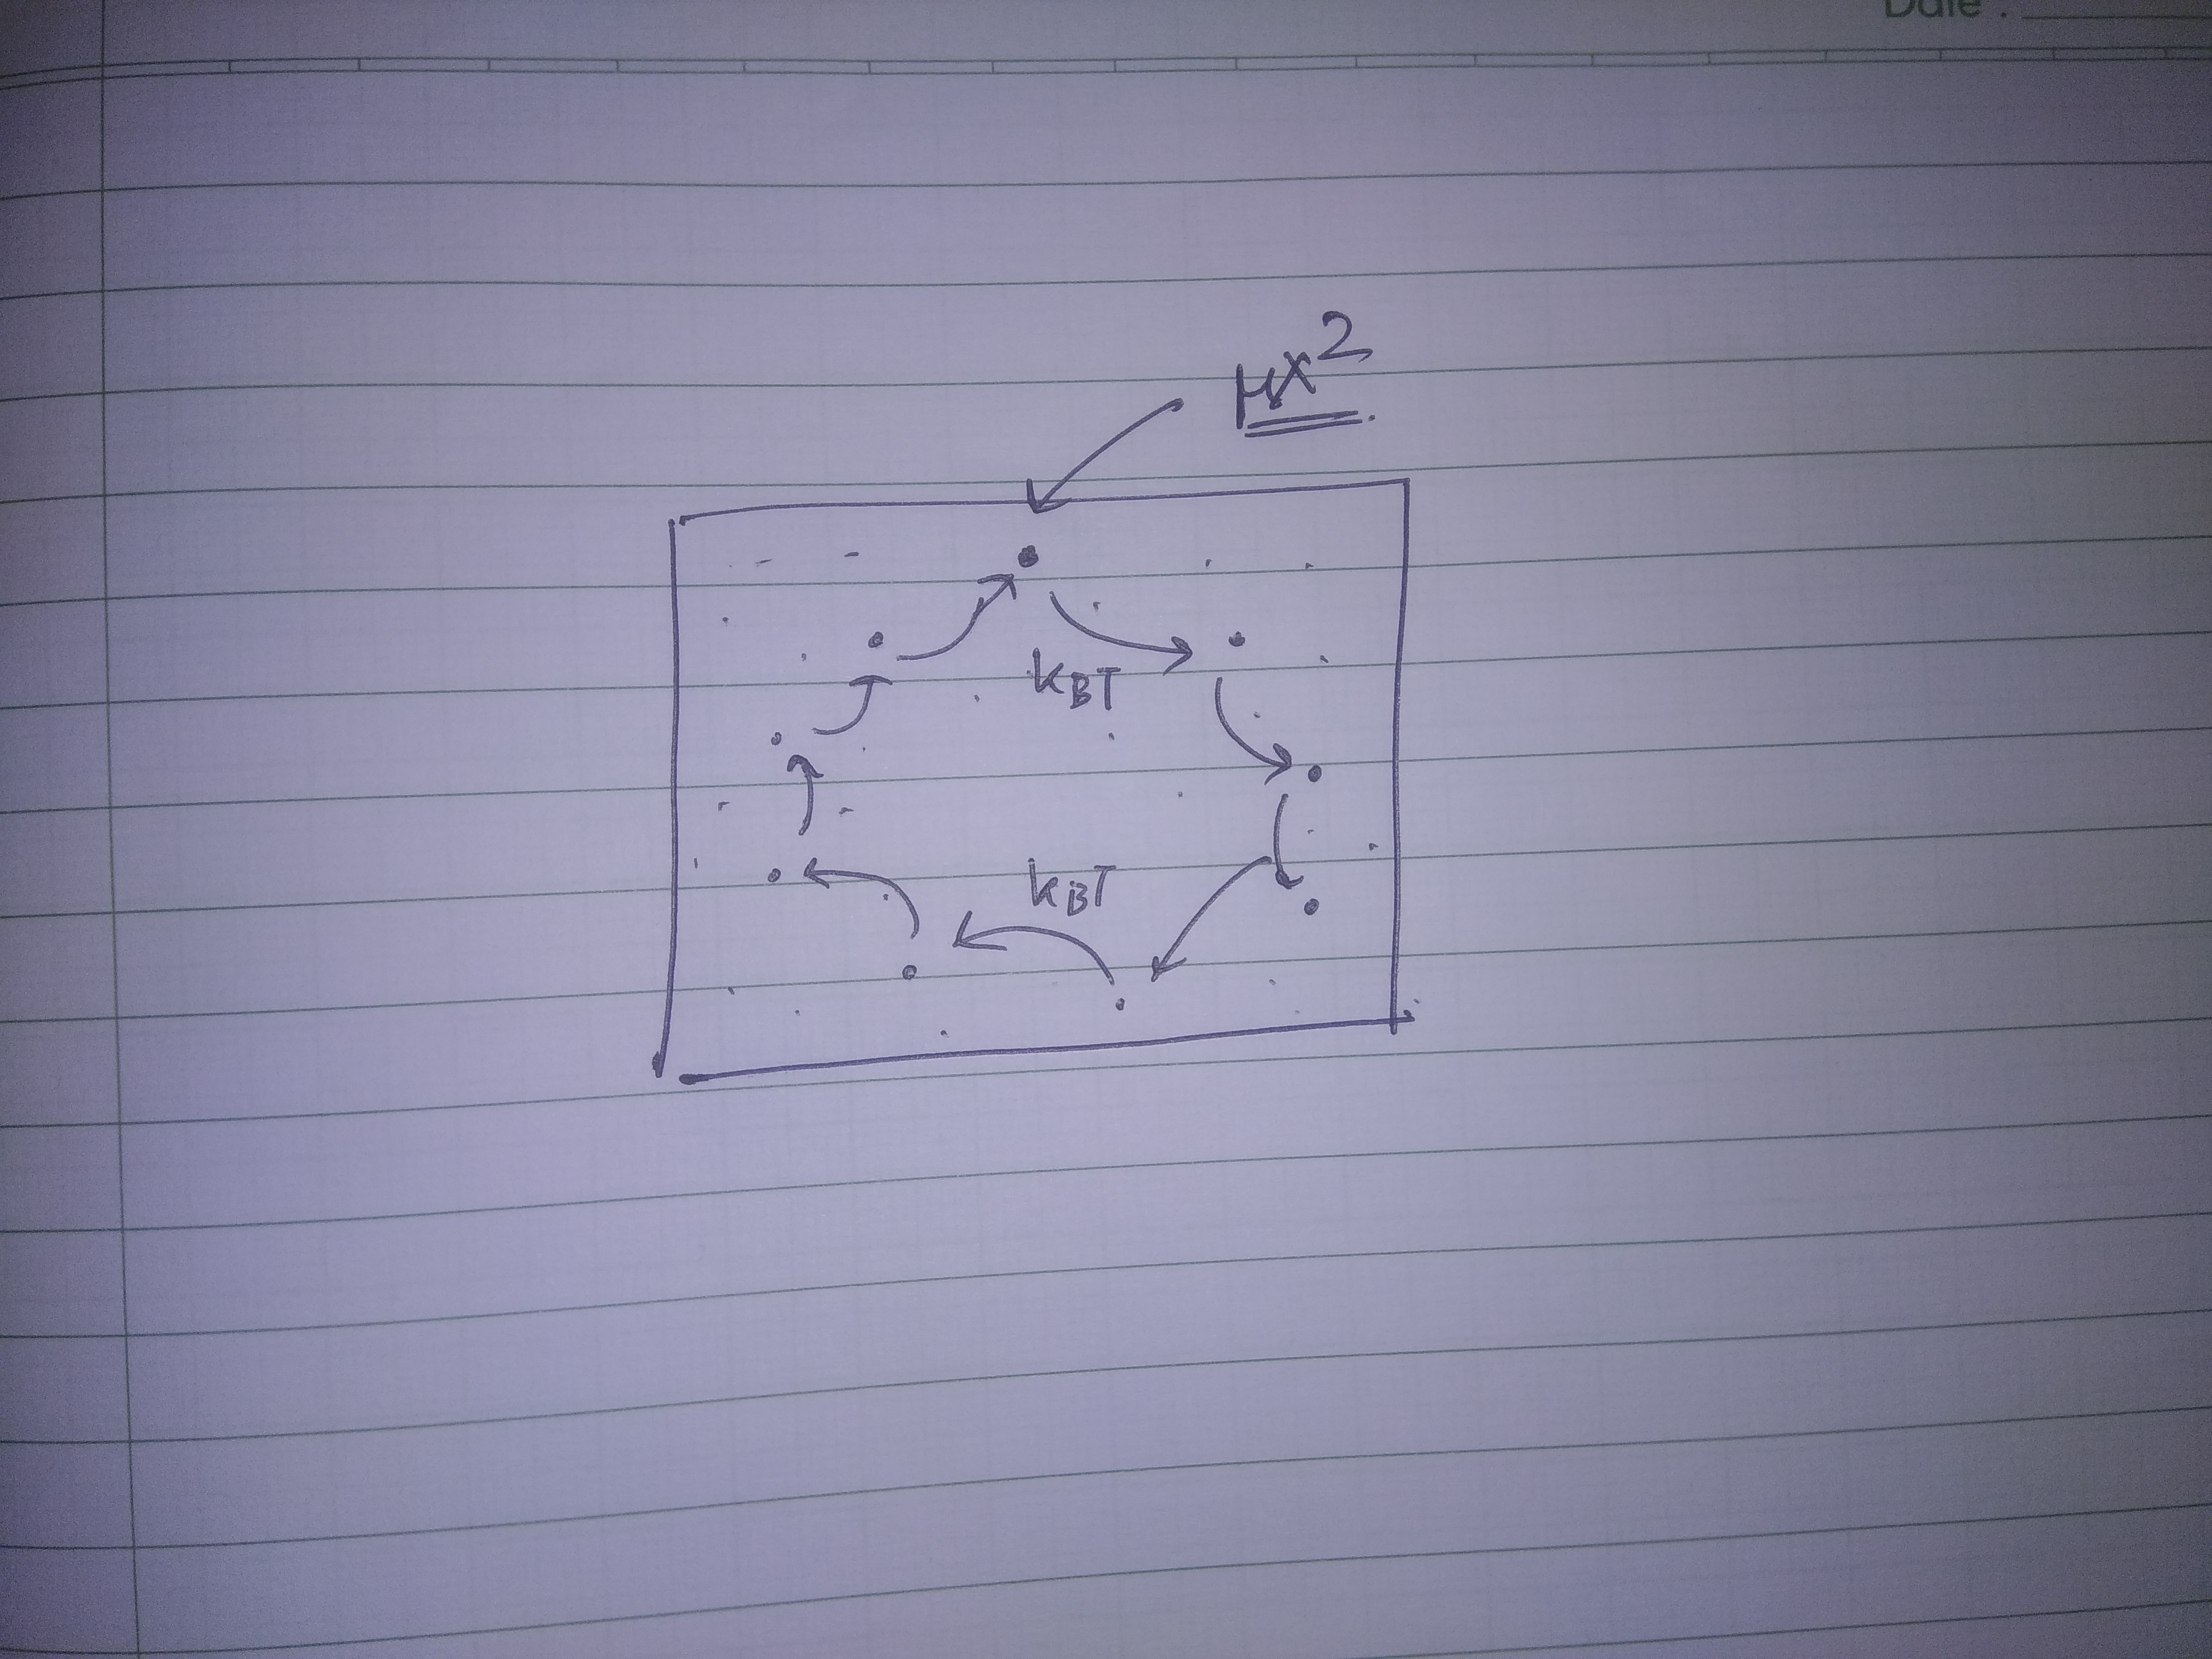 Date :
μx²
kBT
kBT